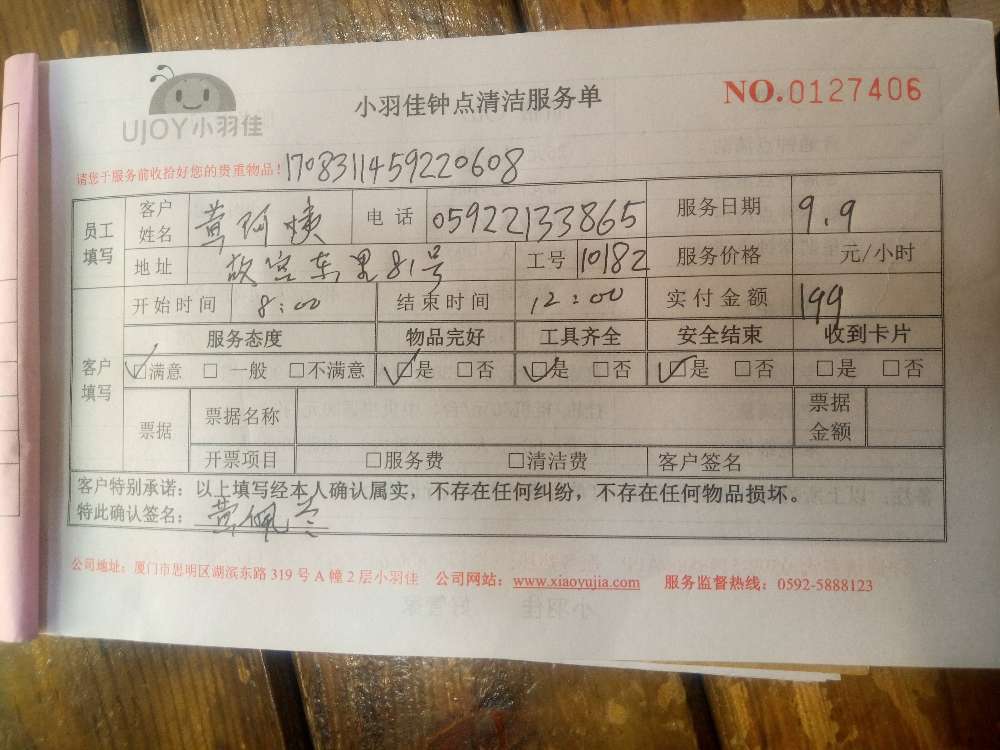 UJOY小羽佳
小羽佳钟点清洁服务单
NO.0127406
请您于服务前收拾好您的贵重物品！1708311459220608
员工填写 客户姓名 黄阿姨 电话 05922133865 服务日期 9.9
地址 故宫东里81号 工号 10182 服务价格 元/小时
客户填写 开始时间 8:00 结束时间 12:00 实付金额 199
服务态度 物品完好 工具齐全 安全结束 收到卡片
☑满意 □一般 □不满意 ☑是 □否 ☑是 □否 ☑是 □否 □是 □否
票据 票据名称 票据金额
开票项目 □服务费 □清洁费 客户签名
客户特别承诺：以上填写经本人确认属实，不存在任何纠纷，不存在任何物品损坏。
特此确认签名：黄佩兰
公司地址：厦门市思明区湖滨东路 319 号 A 幢 2 层小羽佳 公司网站：www.xiaoyujia.com 服务监督热线：0592-5888123